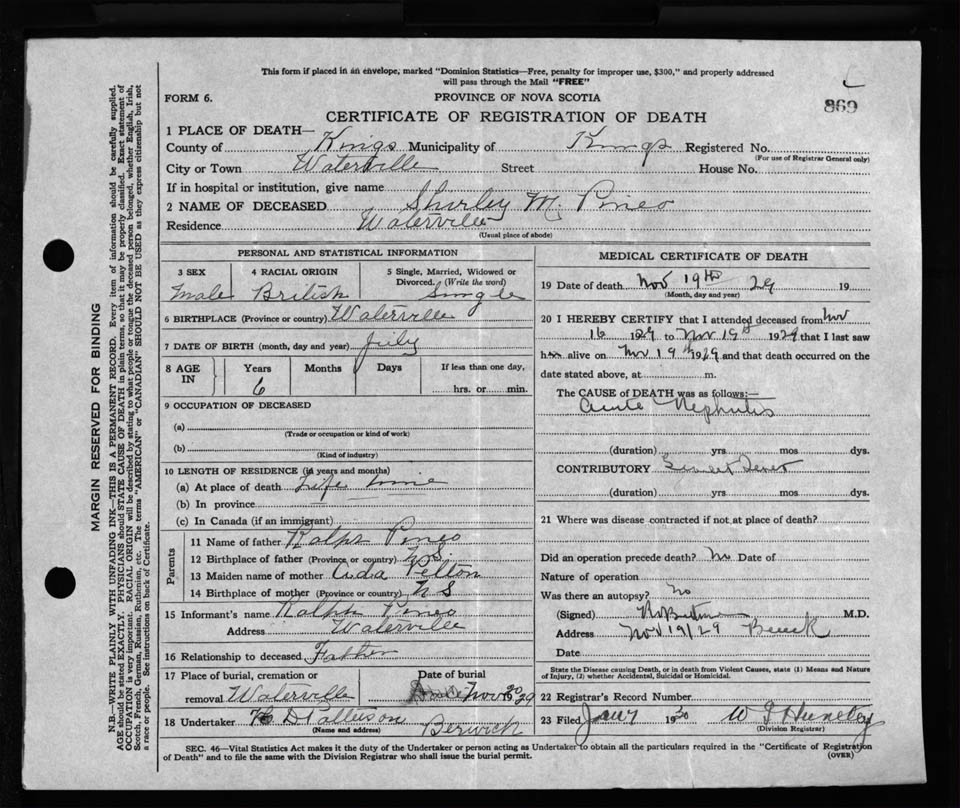 This form if placed in an envelope, marked "Dominion Statistics—Free, penalty for improper use, $300," and properly addressed
will pass through the Mail "FREE"
FORM 6.
PROVINCE OF NOVA SCOTIA
869
CERTIFICATE OF REGISTRATION OF DEATH
1 PLACE OF DEATH—
County of Kings Municipality of Kings Registered No.
(For use of Registrar General only)
City or Town Waterville Street House No.
If in hospital or institution, give name
2 NAME OF DECEASED Shirley M. Pineo
Residence Waterville
(Usual place of abode)
PERSONAL AND STATISTICAL INFORMATION
3 SEX 4 RACIAL ORIGIN 5 Single, Married, Widowed or
Divorced. (Write the word)
Male British Single
6 BIRTHPLACE (Province or country) Waterville
7 DATE OF BIRTH (month, day and year) July
8 AGE IN Years Months Days If less than one day,
6 hrs. or min.
9 OCCUPATION OF DECEASED
(a)
(Trade or occupation or kind of work)
(b)
(Kind of industry)
10 LENGTH OF RESIDENCE (in years and months)
(a) At place of death Life time
(b) In province
(c) In Canada (if an immigrant)
Parents
11 Name of father Ralph Pineo
12 Birthplace of father (Province or country) N.S.
13 Maiden name of mother Felton
14 Birthplace of mother (Province or country) N S
15 Informant's name Ralph Pineo
Address Waterville
16 Relationship to deceased Father
17 Place of burial, cremation or
removal Waterville
Date of burial
Nov 20 1929
18 Undertaker Berwick
(Name and address)
MEDICAL CERTIFICATE OF DEATH
19 Date of death Nov 19th 29 19
(Month, day and year)
20 I HEREBY CERTIFY that I attended deceased from Nov
16 1929 to Nov 19th 1929 that I last saw
h alive on Nov 19th 1929 and that death occurred on
date stated above, at m.
The CAUSE of DEATH was as follows:—
Acute Nephritis
(duration) yrs mos dys.
CONTRIBUTORY Fever
(duration) yrs mos dys.
21 Where was disease contracted if not at place of death?
Did an operation precede death? No Date of
Nature of operation
Was there an autopsy? No
(Signed) M.D.
Address Nov 19/29
Date
State the Disease causing Death, or in death from Violent Causes, state (1) Means and Nature
of Injury, (2) whether Accidental, Suicidal or Homicidal.
22 Registrar's Record Number
23 Filed Jan 7 1930
(Division Registrar)
SEC. 46—Vital Statistics Act makes it the duty of the Undertaker or person acting as Undertaker to obtain all the particulars required in the "Certificate of Registration
of Death" and to file the same with the Division Registrar who shall issue the burial permit.
(OVER)
MARGIN RESERVED FOR BINDING
N.B.—WRITE PLAINLY WITH UNFADING INK—THIS IS A PERMANENT RECORD. Every item of information should be carefully supplied.
AGE should be stated EXACTLY. PHYSICIANS should STATE CAUSE OF DEATH in plain terms, so that it may be properly classified. Exact statement of
OCCUPATION is very important. RACIAL ORIGIN will be described by stating to what people or tongue the deceased person belonged, whether English, Irish,
Scotch, French, German, Russian, Ruthenian, etc. The terms "AMERICAN" or "CANADIAN" SHOULD NOT BE USED as they express citizenship but not
a race or people. See instructions on back of Certificate.